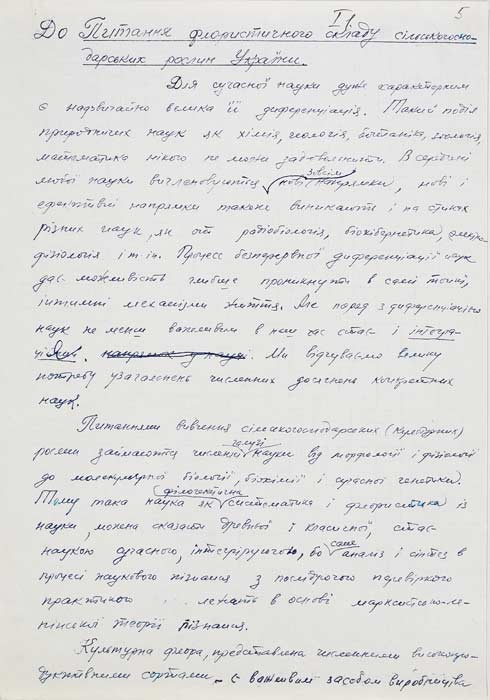 I1
5
До Питання флористичного складу сільськогоспо-
дарських рослин України.
Для сучасної науки дуже характерним
є надзвичайно велика її диференціація. Такий поділ
природничих наук як хімія, геологія, ботаніка, зоологія,
математика нікого не може задовольнити. В середині
любої науки вичленовуються зовсім нові напрямки, нові і
ефективні напрямки також виникають і на стиках
різних наук, як от радіобіологія, біокібернетика,
фізіологія і т. ін. Процес безперервної диференціації наук
дає можливість глибше проникнути в самі тонкі,
інтимні механізми життя. Але поряд з диференціацією
наук не менш важливим в наш час стає і інтегра-
ція їх. напрямок у науці. Ми відчуваємо велику
потребу узагальнень численних досягнень конкретних
наук.
Питаннями вивчення сільськогосподарських (культурних)
рослин займаються численні галузі науки від морфології і фізіології
до молекулярної біології, біохімії і сучасної генетики.
Тому така наука як філогенетична систематика і флористика із
науки, можна сказати древньої і класичної, стає
наукою сучасною, інтегруючою, бо саме аналіз і синтез в
процесі наукового пізнання з послідуючою перевіркою
практикою лежать в основі марксистсько-ле-
нінської теорії пізнання.
Культурна флора, представлена численними високопро-
дуктивними сортами є важливим засобом виробництва